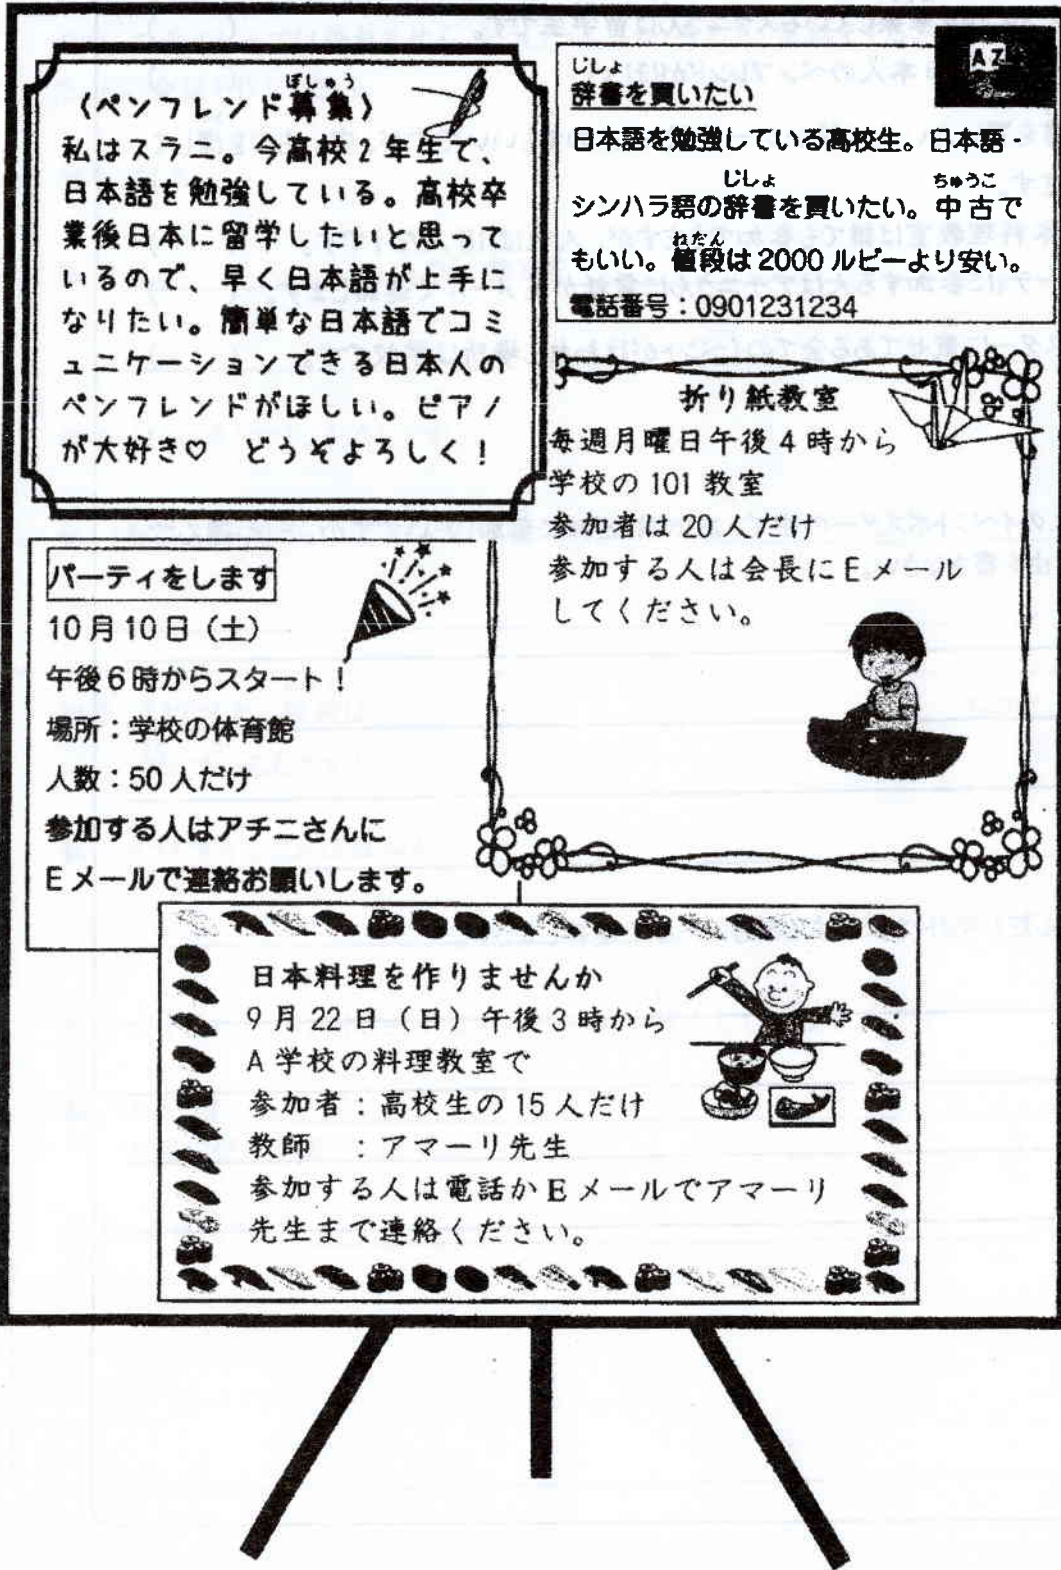 〈ペンフレンド募集〉
ぼしゅう
私はスラニ。今高校2年生で、
日本語を勉強している。高校卒
業後日本に留学したいと思って
いるので、早く日本語が上手に
なりたい。簡単な日本語でコミ
ュニケーションできる日本人の
ペンフレンドがほしい。ピアノ
が大好き♡ どうぞよろしく!
AZ
じしょ
辞書を買いたい
日本語を勉強している高校生。日本語-
じしょ ちゅうこ
シンハラ語の辞書を買いたい。中古で
ねだん
もいい。値段は2000ルピーより安い。
電話番号:0901231234
折り紙教室
毎週月曜日午後4時から
学校の101教室
参加者は20人だけ
参加する人は会長にEメール
してください。
パーティをします
10月10日(土)
午後6時からスタート!
場所:学校の体育館
人数:50人だけ
参加する人はアチニさんに
Eメールで連絡お願いします。
日本料理を作りませんか
9月22日(日)午後3時から
A学校の料理教室で
参加者:高校生の15人だけ
教師 :アマーリ先生
参加する人は電話かEメールでアマーリ
先生まで連絡ください。